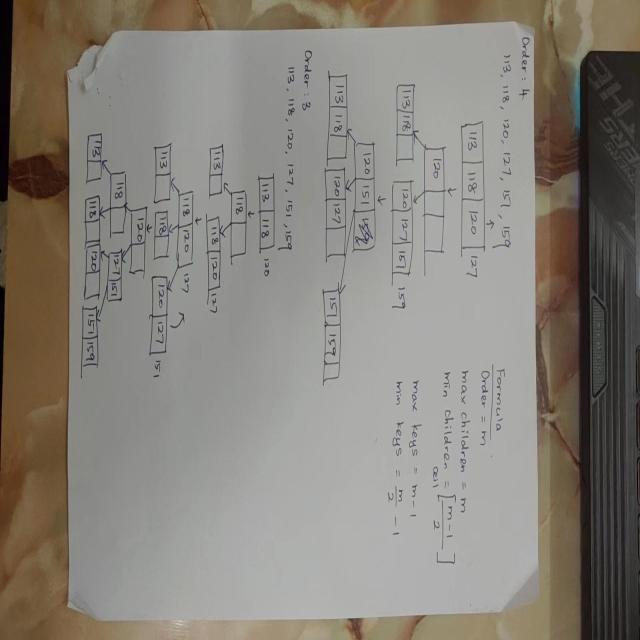 Order-4
113, 118, 120, 127, 151, 159
113 118 120 127
120
113 118 120 127 151 159
120 151
113 118 120 127 151 159
Order-3
113, 118, 120, 127, 151, 159
113 118 120
118
113 118 120 127
118 120 127
113 118 120 127 151
120
118 127 151
113 118 120 151 159
Formula
Order = m
max children = m
min children = ceil [m-1/2]
max keys = m-1
min keys = m/2 - 1